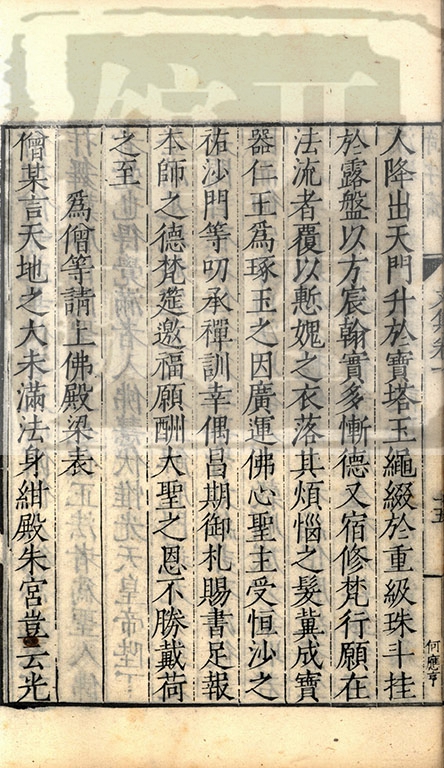 人降出天門升於寶塔玉繩綴於重級珠斗挂
於露盤以方宸翰實多慚德又宿修梵行願在
法流者覆以慙媿之衣落其煩惱之髮冀成寶
器仁王爲琢玉之因廣運佛心聖主受恒沙之
祐沙門等叨承禪訓幸偶昌期御札賜書足報
本師之德梵筵邀福願酬大聖之恩不勝戴荷
之至
爲僧等請上佛殿梁表
僧某言天地之大未滿法身紺殿朱宮豈云光
何應亨